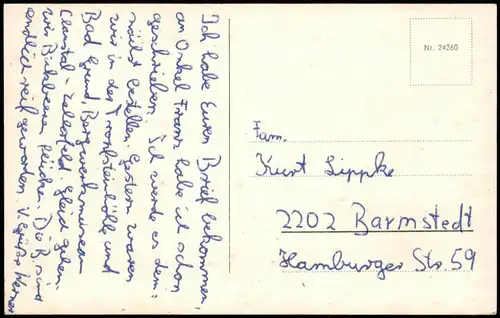 Ich habe Euren Brief bekommen,
an Onkel Franz habe ich schon
geschrieben. Ich werde es dem-
bestellen. Gestern waren
wir in der Tropfsteinhölle und
Bad Grund, Bergwerksmuseum
Clausthal-Zellerfeld. Gleich gehen
wir Bickbeeren pflücken. Die sind
endlich reif geworden. V. Grüße Werner
Nr. 24260
Fam.
Kurt Lippke
2202 Barmstedt
Hamburger Str. 59